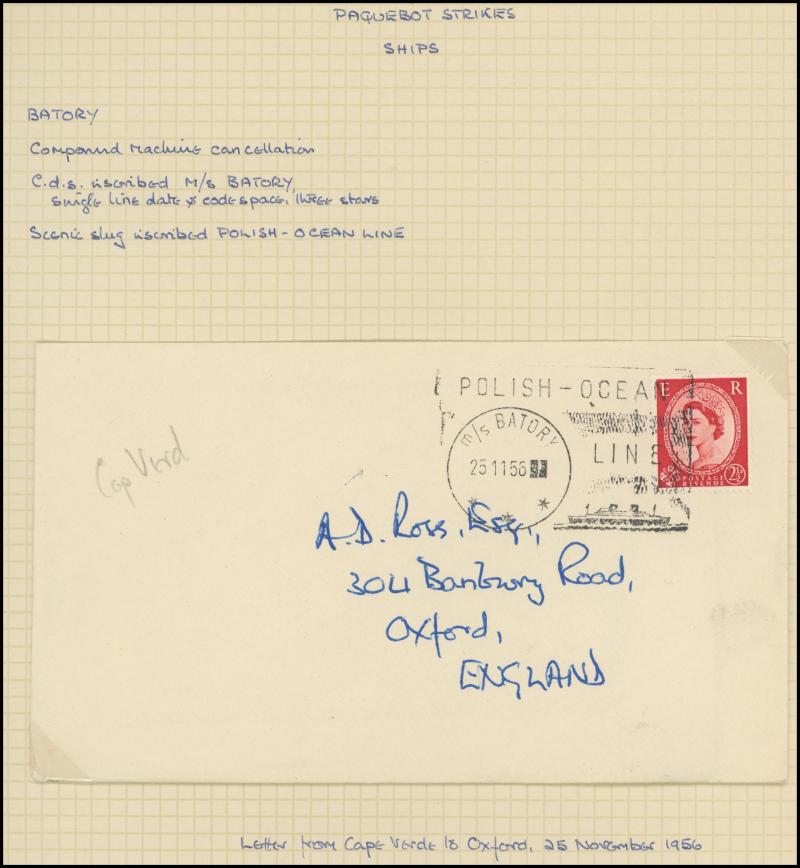 PAQUEBOT STRIKES
SHIPS
BATORY
Compound machine cancellation
C.d.s. iscribed M/s BATORY,
single line date & code space, three stars
Scenic slug iscribed POLISH - OCEAN LINE
POLISH - OCEAN
LINE
m/s BATORY
25 11 56
E R
POSTAGE
REVENUE
2½
Cap Verd
A.D. Ross, Esq.,
304 Banbury Road,
Oxford,
ENGLAND
Letter from Cape Verde to Oxford, 25 November 1956